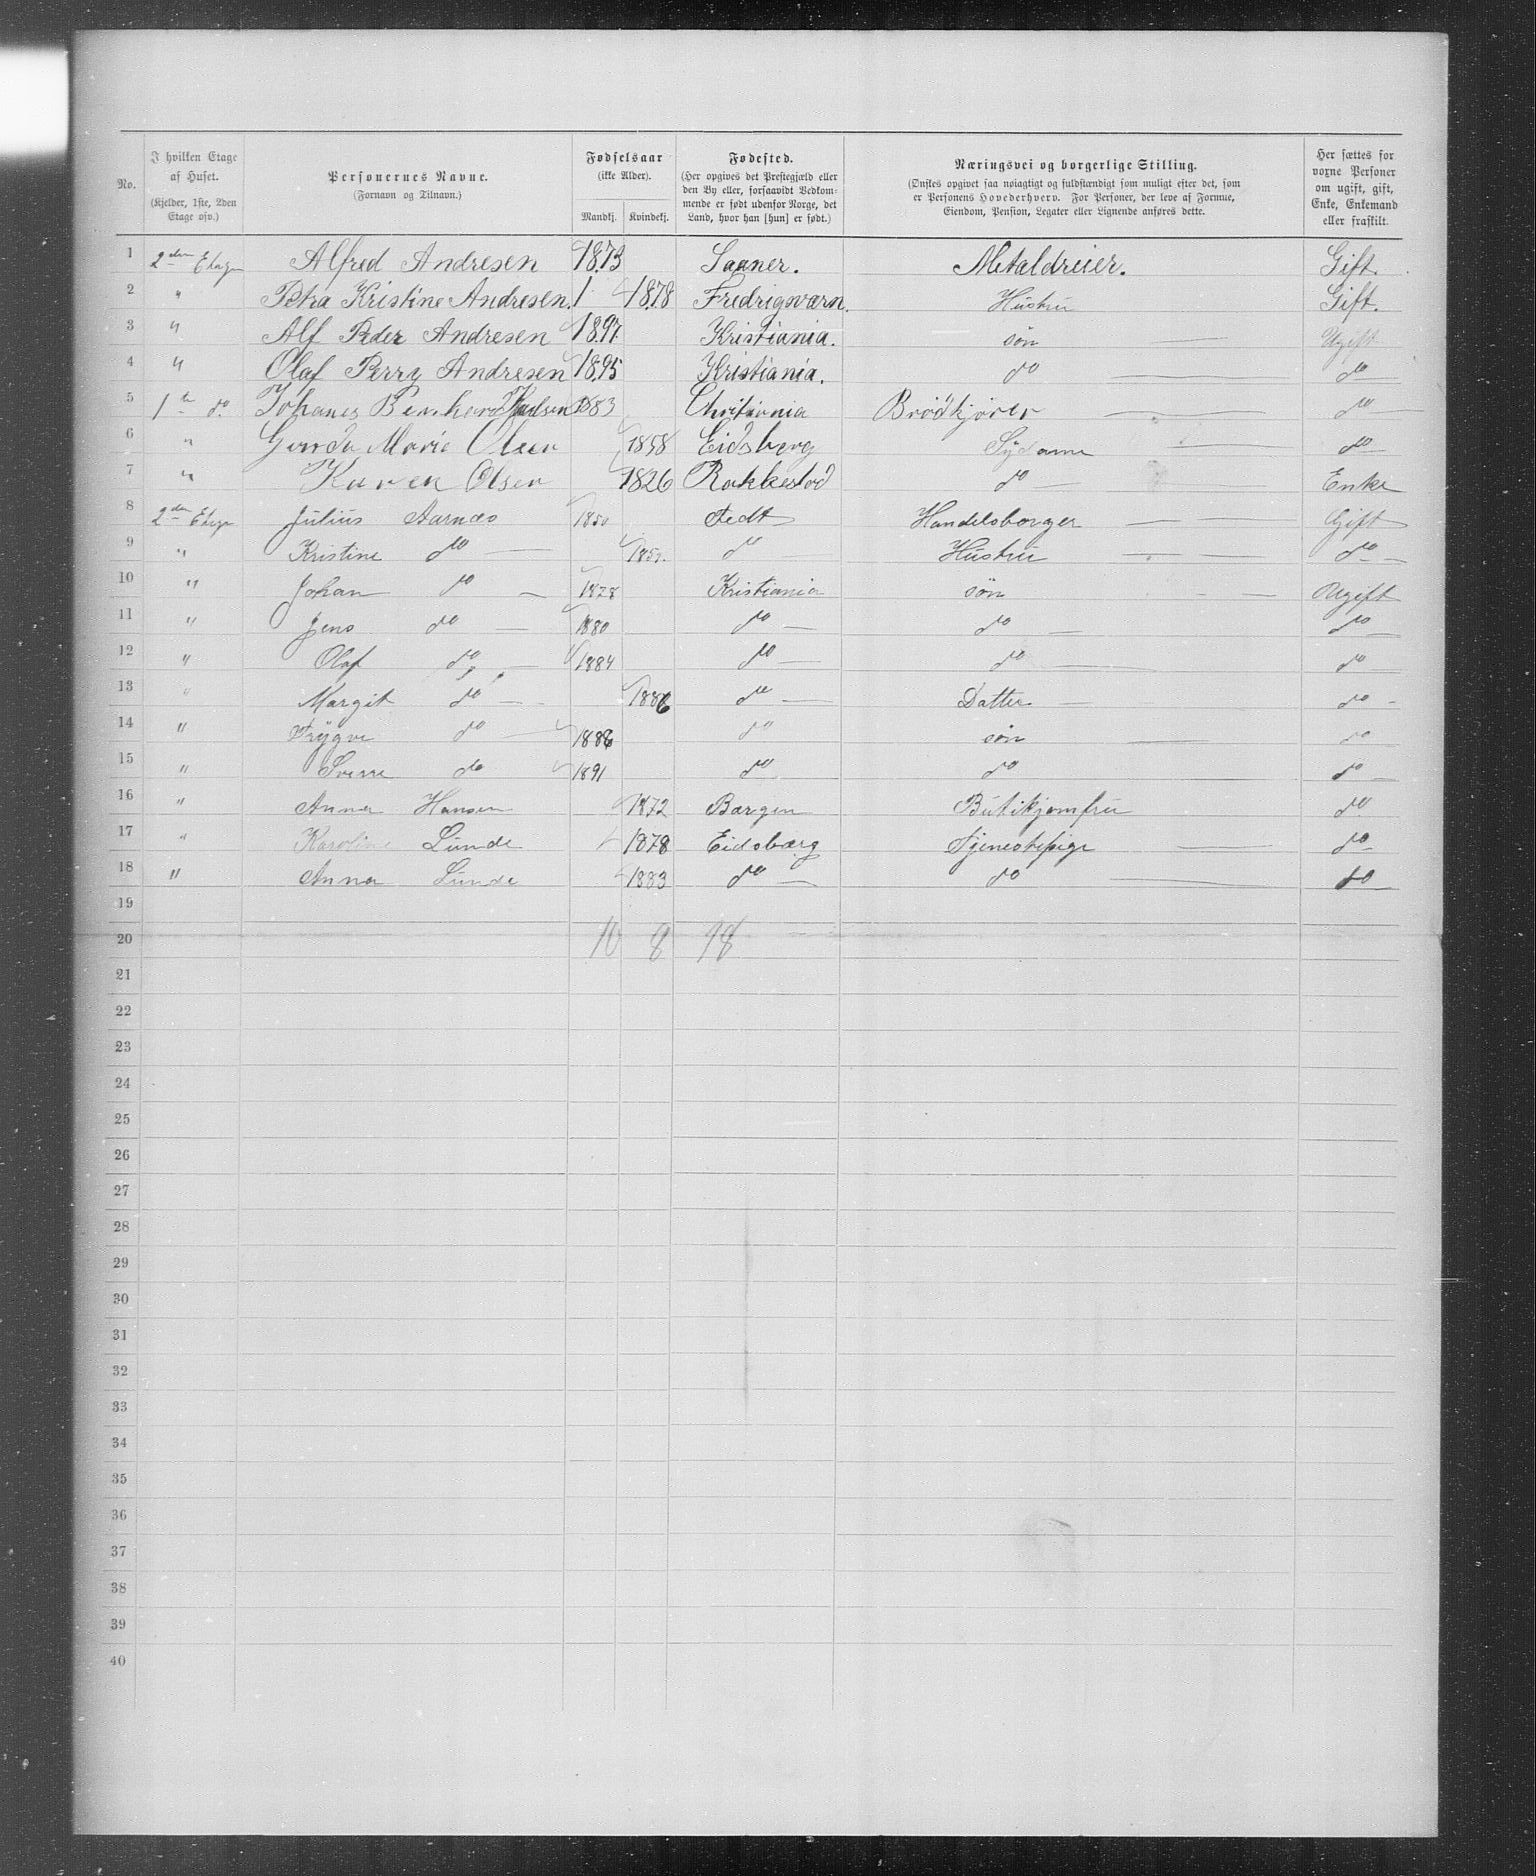 No.
I hvilken Etage af Huset.
(Kjelder, 1ste, 2den Etage osv.)
Personernes Navne.
(Fornavn og Tilnavn.)
Fødselsaar
(ikke Alder).
Mandkj. Kvindekj.
Fødested.
(Her opgives det Præstegjæld eller
den By eller, forsaavidt Vedkom-
mende er født udenfor Norge, det
Land, hvor han [hun] er født.)
Næringsvei og borgerlige Stilling.
(Ønskes opgivet saa nøiagtigt og fuldstændigt som muligt efter det, som
er Personens Hovederhverv. For Personer, der leve af Formue,
Eiendom, Pension, Legater eller Lignende anføres dette.
Her sættes for
voxne Personer
om ugift, gift,
Enke, Enkemand
eller fraskilt.
1 2den Etage Alfred Andresen 1873 Saaner. Metaldreier. Gift.
2 " Petra Kristine Andresen. 1 1878 Fredrigsværn. Hustru Gift.
3 " Alf Peder Andresen 1897 Kristiania. søn Ugift
4 " Olaf Perry Andresen 1895 Kristiania. do do
5 1te do. Johanes Bernhard 1883 Christiania Brödkjörer do
6 " Gunda Marie Olsen 1858 Eidsberg Sydame do
7 " Karen Olsen 1826 Rakkestad do Enke
8 2den Etage Julius Aarnæs 1850 Gift
Handelsborger
9 " Kristine do do Hustru do
10 " Johan do 1878 Kristiania søn Ugift
11 " Jens do 1880 do do do
12 " Olaf do 1884 do do do
13 " Margit do 1886 do Datter do
14 " Trygve do 1888 do søn do
15 " Sverre do 1891 do do do
16 " Anna Hansen 1872 Bargen Butikjomfru do
17 " Karoline Lunde 1878 Eidsbærg Tjenestepige do
18 " Anna Lunde 1883 do do do
19
20 10 8 18
21
22
23
24
25
26
27
28
29
30
31
32
33
34
35
36
37
38
39
40